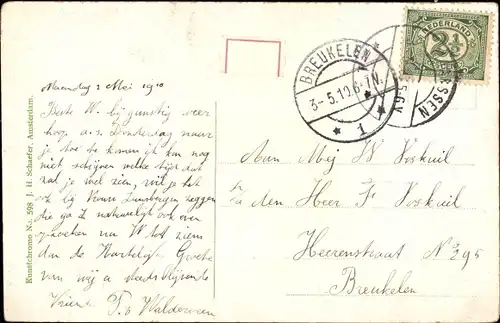 Maandag 2 Mei 1910
Beste W. bij gunstig weer
hoop a.s. Donderdag naar
je toe te komen ik kan nog
niet schrijven welke tijd dat
zal je wel zien, wil je het
bij Vrouw zeggen
die ga I natuurlijk ook even
na W tot ziens
dan de Hartelijke Groete
van mij a steedsblijvende
Vriend T. v Walderveen
Kunstchromo No. 598 J. H. Schaefer, Amsterdam.
BREUKELEN
3-5.10.6-7N.
1
NEDERLAND
2½
CENT
SSEN
Aan Mej W Voskuil
p/a den Heer F Voskuil
Heerenstraat N 295
Breukelen